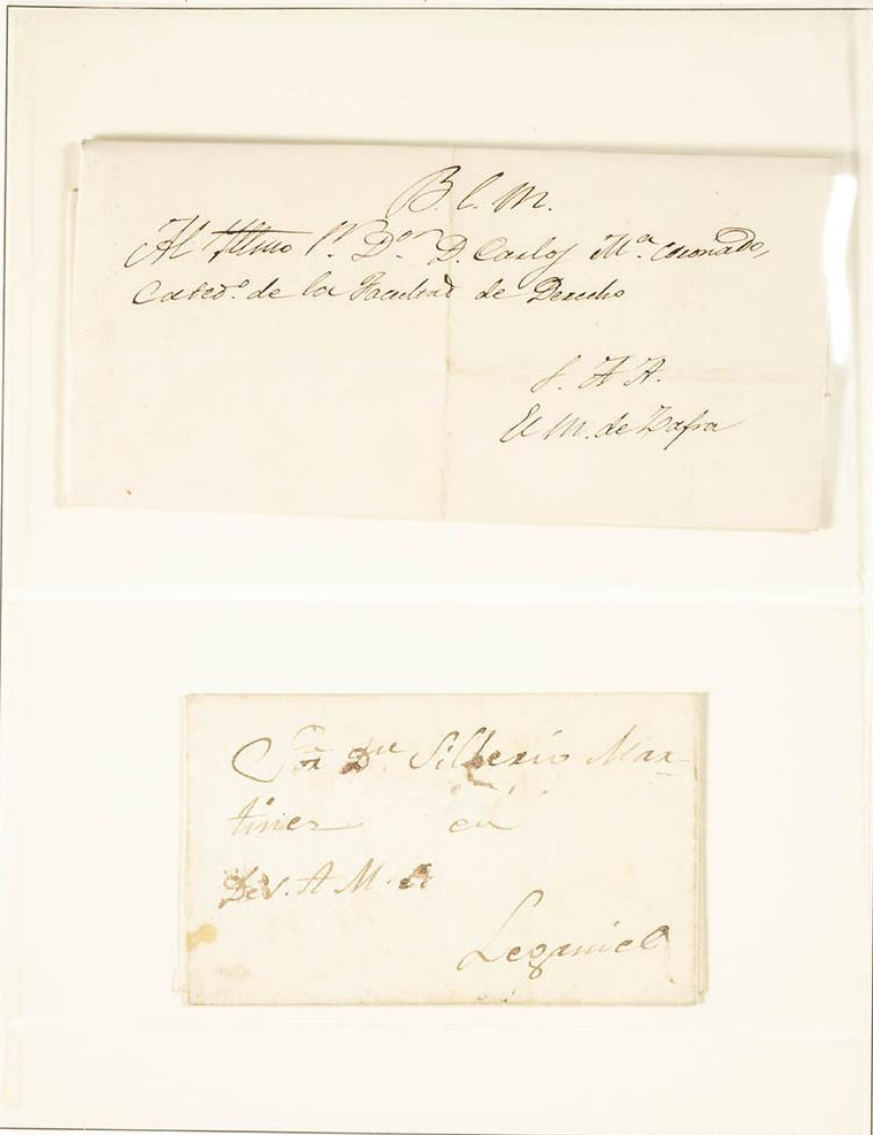 B. L. M.
Al Illmo Sr. Dor. D. Carlos Ma. Coronado,
Catedo. de la Facultad de Derecho
S. A. A.
El M. de Zafra
Sor Dn Silberio Mar-
tinez en
De S. A. M.
Leganiel